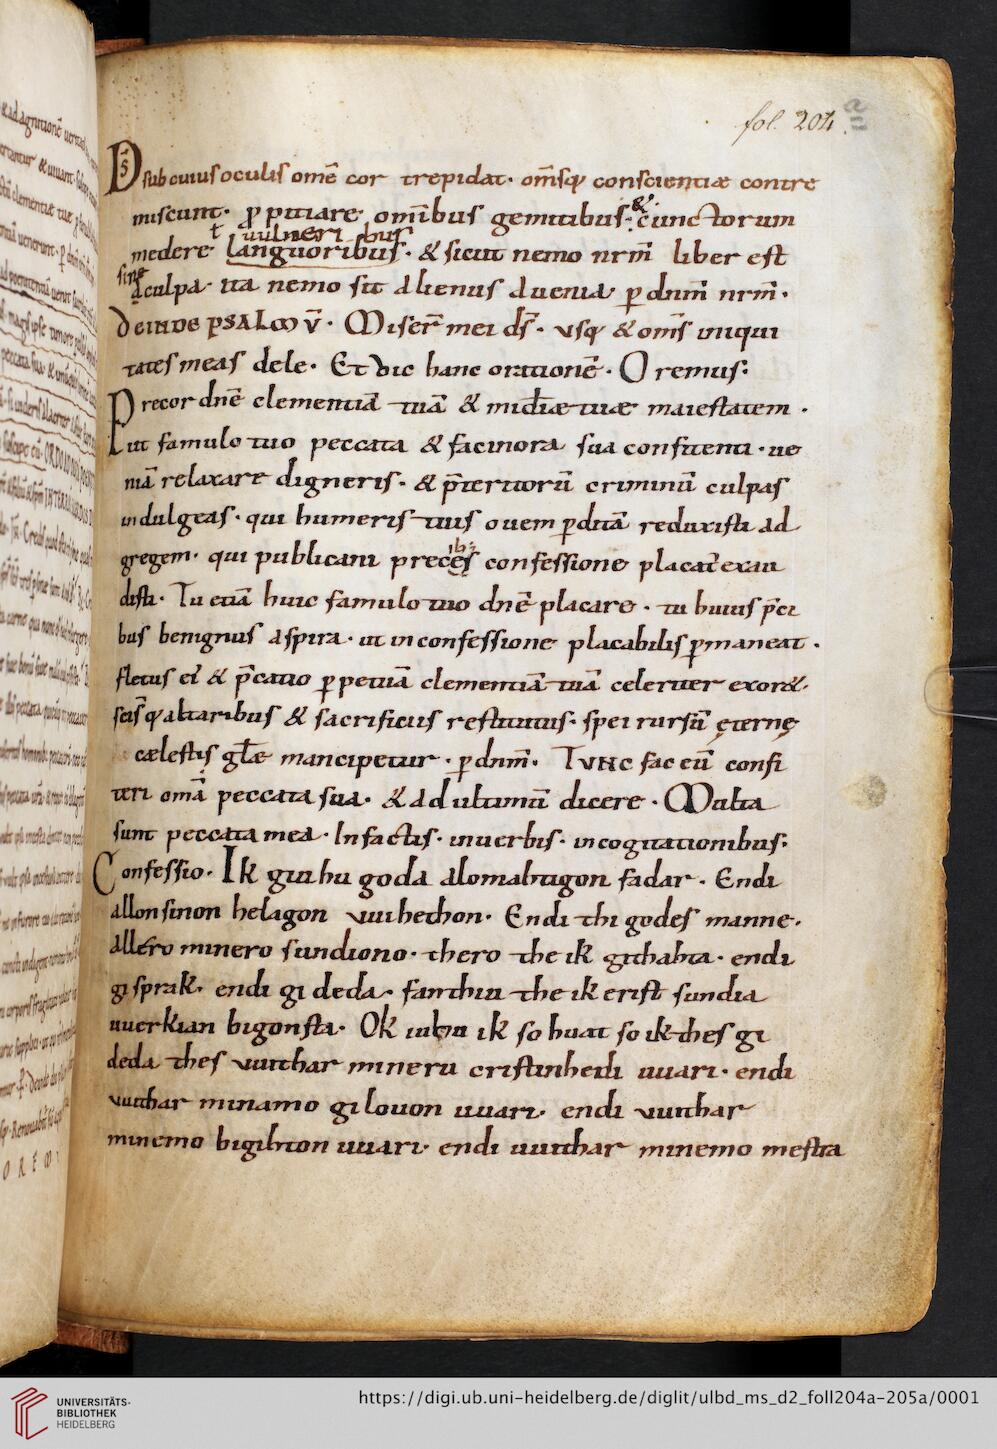 fol. 204 a
D̄s sub cuius oculis om̄e cor trepidat· om̄sq; conscientiæ contre
miscunt· ꝓpitiare om̄ibus gemitibus· & cunctorum
ł vulneribus
medere languoribus· & sicut nemo nr̄m liber est
sine
a culpa· ita nemo sit alienus a uenia ꝑ dnm̄ nrm̄·
Deinde PSALM V̄· Miser̄ mei ds̄· vsq; & om̄s iniqui
tates meas dele· Et dic hanc orationē· Oremus:
Precor dnē clementiā tuā & mīdiæ tuæ maiestatem·
ut famulo tuo peccata & facinora sua confitenti· ue
niā relaxare digneris· & p̄teritorū criminū culpas
indulgeas· qui humeris tuis ouem ꝑditā reduxisti ad
gregem· qui publicani preces confessione placat̄ exau
disti· Tu etiā huic famulo tuo dnē placare· tu huius p̄ci
bus benignus aspira· ut in confessione placabilis ꝑmaneat·
fletus ei & p̄catio ꝑpetuā clementiā tuā celeriter exor&·
sc̄isq; altaribus & sacrificiis restitutus· spei rursū ęternę
cælestis gl̄æ mancipetur· ꝑ dnm̄· Tunc fac eū confi
teri om̄a peccata sua· & ad ultimū dicere· Multa
sunt peccata mea· In factis· in uerbis· in cogitationibus:
Confessio· Ik giuhu goda alomahtigon fadar· Endi
allon sinon helagon vuihethon· Endi thi godes manne·
allero minero sundiono· thero the ik githahta· endi
gisprak· endi gideda· fan thiu the ik erist sundia
uuerkian bigonsta· Ok iuhu ik so huat so ik thes gi
deda thes vuithar mineru cristinhedi uuari· endi
vuithar minamo gilouon uuari· endi vuithar
minemo bigihton uuari· endi uuithar minemo mestra
UNIVERSITÄTS-
BIBLIOTHEK
HEIDELBERG
https://digi.ub.uni-heidelberg.de/diglit/ulbd_ms_d2_foll204a-205a/0001